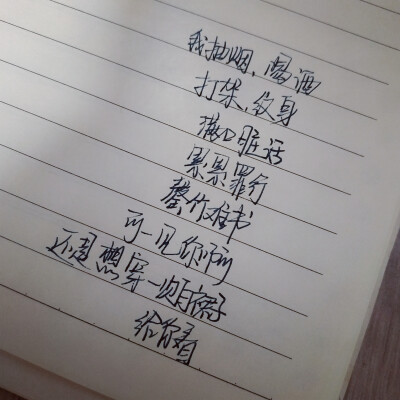 我抽烟、喝酒
打架、纹身
满口脏话
累累罪行
罄竹难书
可一见你啊
还是想穿一次白裙子
给你看